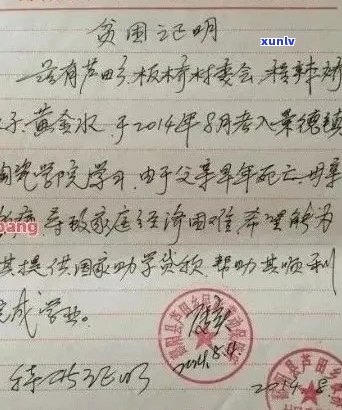 贫困证明
xunlv
兹有芦田乡板桥村委会程辣娇
子:黄金水 于2014年8月考入景德镇
陶瓷学院学习,由于父亲早年死亡,母亲
病,导致家庭经济困难,希望能为
bang
其提供国家助学贷款,帮助其顺利
完成学业。
2014.8.
特此证明
2014.8
鄱阳县芦田乡
芦田乡